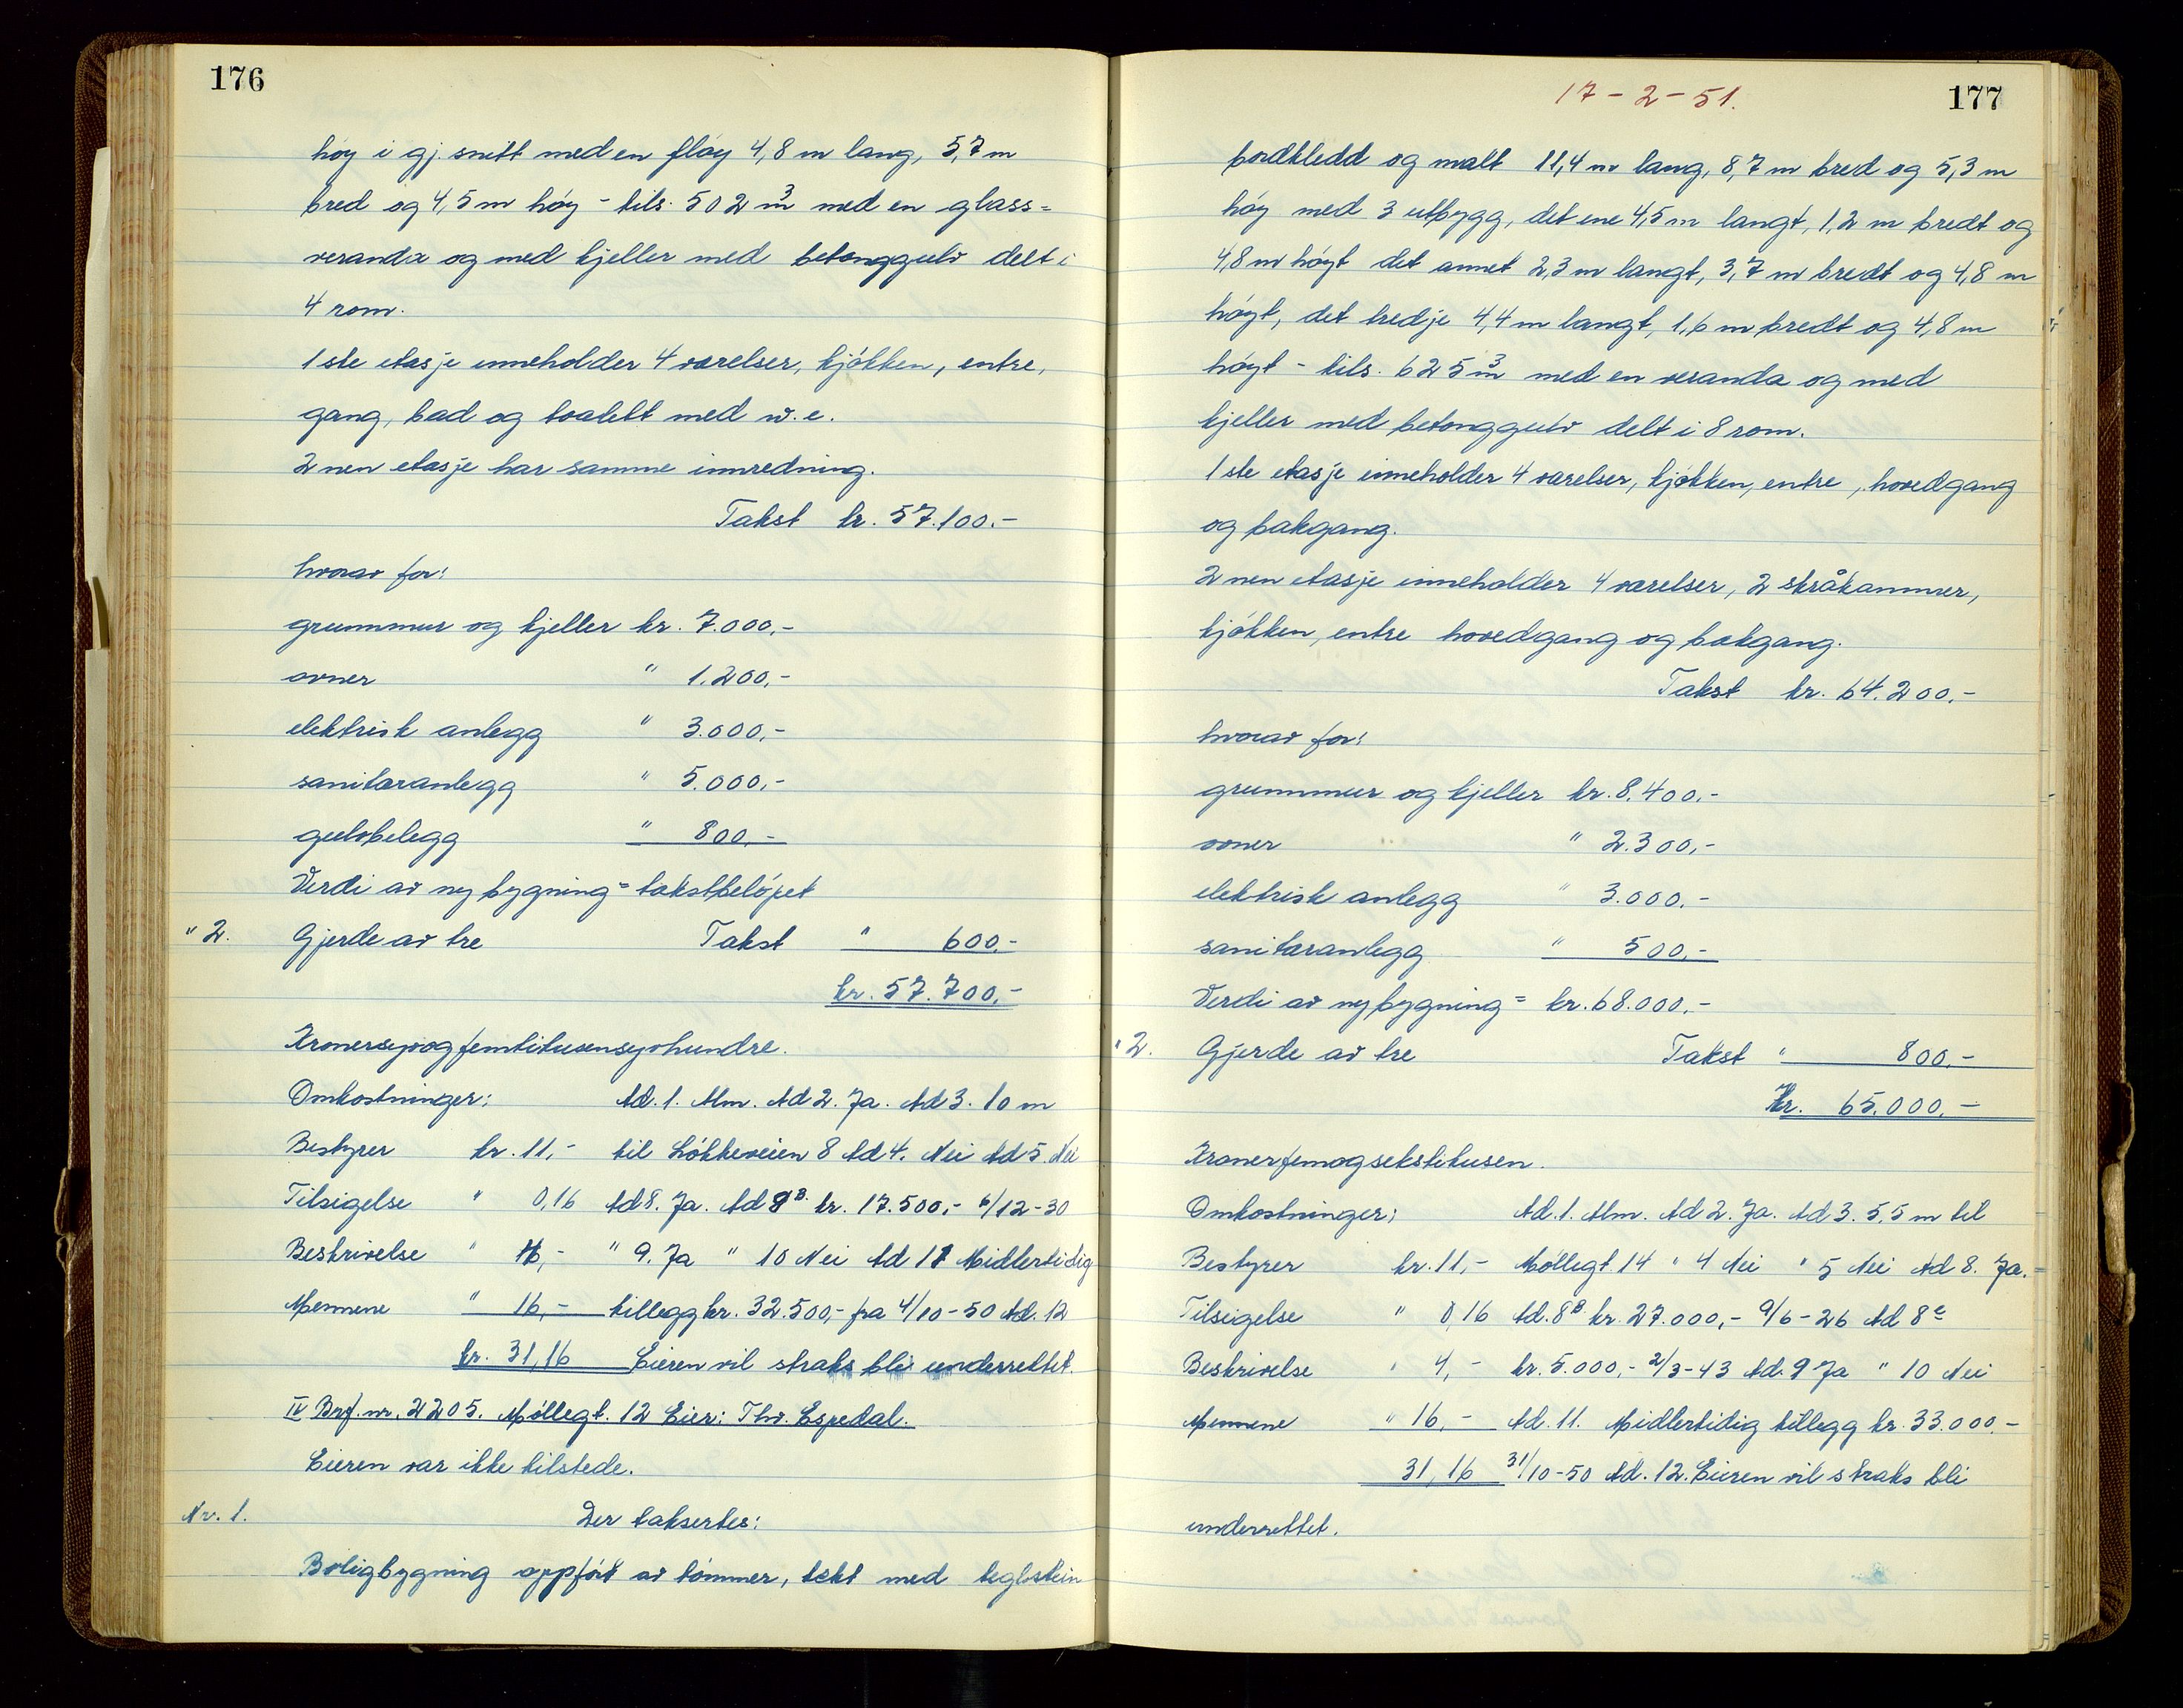 176
høy i gj. snitt med en fløy 4,8 m lang, 5,7 m
bred og 4,5 m høy - tils. 502 m³ med en glass=
veranda og med kjeller med betonggulv delt i
4 rom.
1ste etasje inneholder 4 værelser, kjøkken, entre,
gang, bad og toalett med w.c.
2nen etasje har samme innredning.
Takst kr. 57.100.-
hvorav for:
grunnmur og kjeller kr. 7.000,-
ovner " 1.200,-
elektrisk anlegg " 3.000,-
sanitæranlegg " 5.000,-
gulvbelegg " 800,-
Verdi av ny bygning = takstbeløpet
" 2. Gjerde av tre Takst " 600.-
kr. 57.700.-
Kronersyvogfemtitusensyvhundre.
Omkostninger: Ad. 1. Alm. Ad 2. Ja. Ad 3. 10 m
Bestyrer kr. 11,- til Løkkeveien 8 Ad 4. Nei Ad 5. Nei
Tilsigelse " 0,16 Ad 8. Ja. Ad 8B. kr. 17.500,- 6/12-30
Beskrivelse " 4,- " 9. Ja " 10 Nei Ad 11 Midlertidig
Mennene " 16,- tillegg kr. 32.500,- fra 4/10-50 Ad. 12
kr. 31,16 Eieren vil straks bli underrettet.
IV Brf. nr. 2205. Møllegt. 12 Eier: Thv. Espedal.
Eieren var ikke tilstede.
Nr. 1. Der taksertes:
Boligbygning oppført av tømmer, tekt med teglstein
17-2-51.
177
bordkledd og malt 11,4 m lang, 8,7 m bred og 5,3 m
høy med 3 utbygg, det ene 4,5 m langt, 1,2 m bredt og
4,8 m høyt det annet 2,3 m langt, 3,7 m bredt og 4,8 m
høyt, det tredje 4,4 m langt, 1,6 m bredt og 4,8 m
høyt - tils. 625 m³ med en veranda og med
kjeller med betonggulv delt i 8 rom.
1ste etasje inneholder 4 værelser, kjøkken, entre, hovedgang
og bakgang.
2nen etasje inneholder 4 værelser, 2 skråkammer,
kjøkken, entre hovedgang og bakgang.
Takst kr. 64.200.-
hvorav for:
grunnmur og kjeller kr. 8.400.-
ovner " 2.300,-
elektrisk anlegg " 3.000.-
sanitæranlegg " 500,-
Verdi av ny bygning = kr. 68.000,-
" 2. Gjerde av tre Takst " 800.-
Kr. 65.000,-
Kronerfemogsekstitusen.
Omkostninger: Ad. 1. Alm. Ad 2. Ja. Ad 3. 5,5 m til
Bestyrer kr. 11,- Møllegt. 14 " 4 Nei " 5 Nei Ad 8. Ja.
Tilsigelse " 0,16 Ad. 8B. kr. 27.000,- 9/6-26 Ad 8c
Beskrivelse " 4,- kr. 5.000,- 2/3-43 Ad. 9 Ja " 10 Nei
Mennene " 16,- Ad. 11. Midlertidig tillegg kr. 33.000.-
31,16 31/10-50 Ad. 12. Eieren vil straks bli
underrettet.